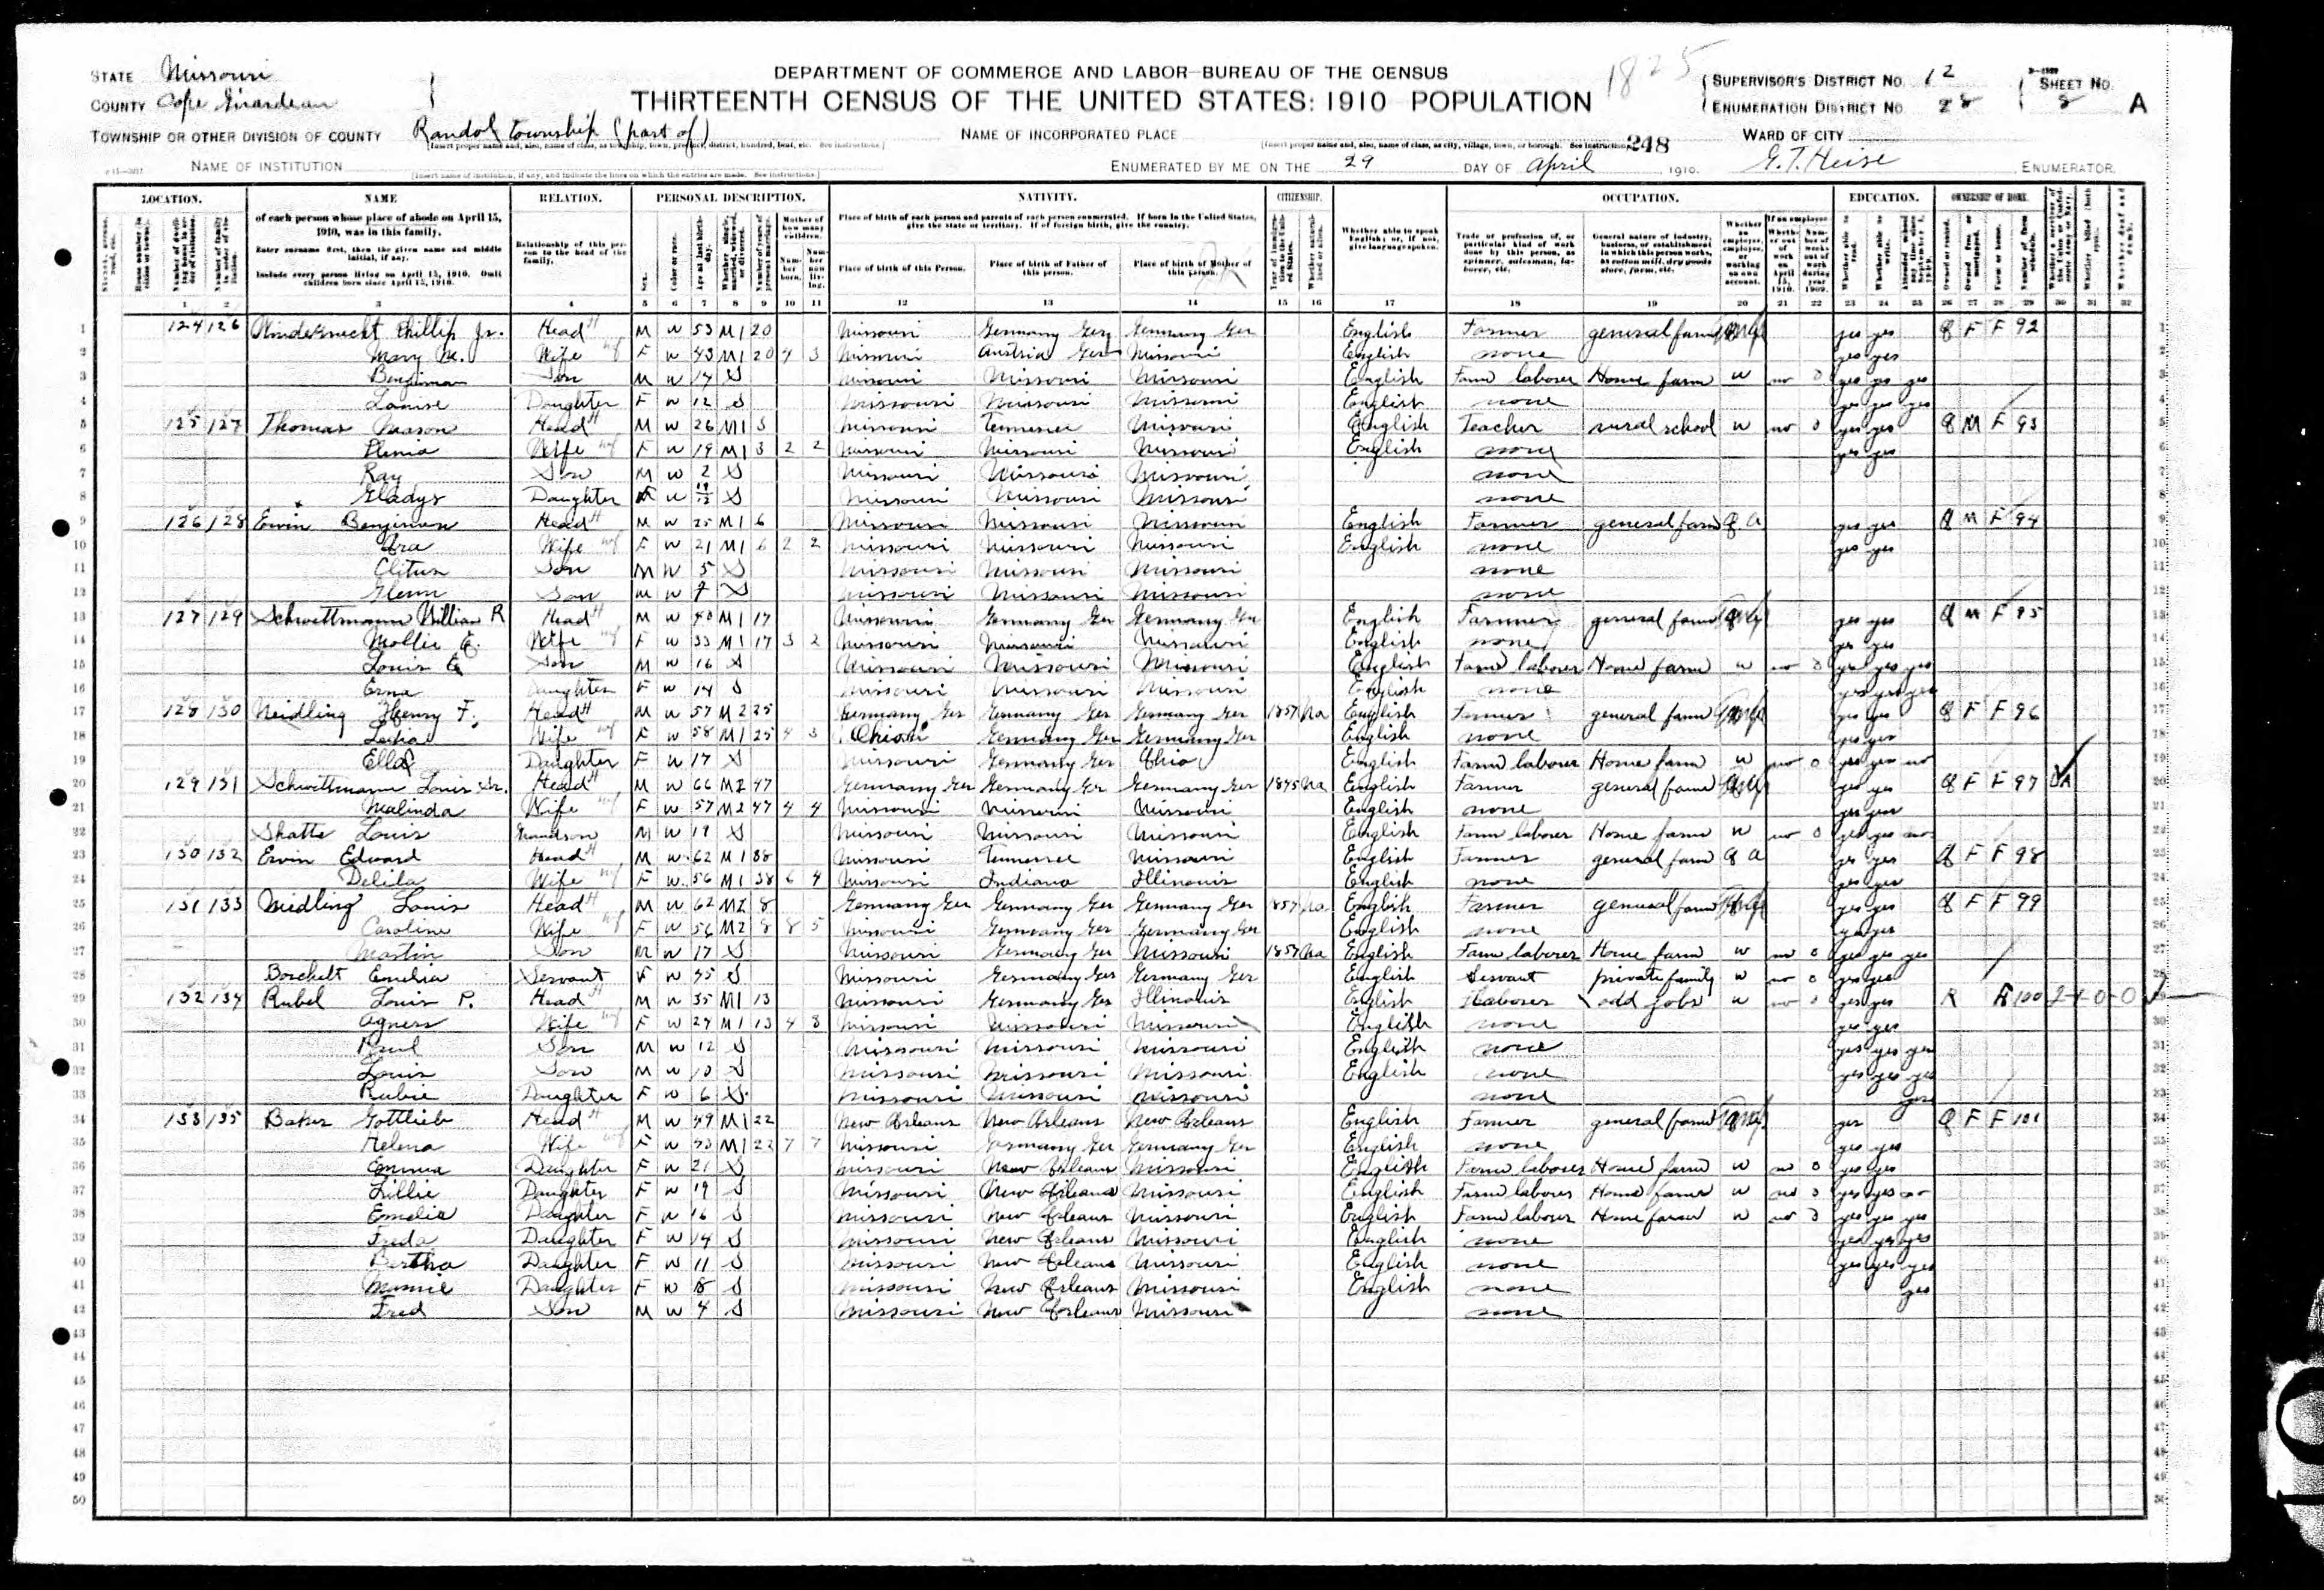 STATE Missouri
COUNTY Cape Girardeau
DEPARTMENT OF COMMERCE AND LABOR—BUREAU OF THE CENSUS
THIRTEENTH CENSUS OF THE UNITED STATES: 1910 POPULATION
1825
SUPERVISOR'S DISTRICT NO. 12
ENUMERATION DISTRICT NO. 28
SHEET NO. 8 A
TOWNSHIP OR OTHER DIVISION OF COUNTY Randol township (part of)
NAME OF INCORPORATED PLACE
248
WARD OF CITY
NAME OF INSTITUTION
ENUMERATED BY ME ON THE 29 DAY OF April, 1910. G. T. Heise ENUMERATOR.
LOCATION. NAME RELATION. PERSONAL DESCRIPTION. NATIVITY. CITIZENSHIP. OCCUPATION. EDUCATION. OWNERSHIP OF HOME.
of each person whose place of abode on April 15, 1910, was in this family.
Enter surname first, then the given name and middle initial, if any.
Include every person living on April 15, 1910. Omit children born since April 15, 1910.
Relationship of this person to the head of the family.
Place of birth of each person and parents of each person enumerated. If born in the United States, give the state or territory. If of foreign birth, give the country.
Place of birth of this Person. Place of birth of Father of this person. Place of birth of Mother of this person.
Whether able to speak English; or, if not, give language spoken.
1 2 3 4 5 6 7 8 9 10 11 12 13 14 15 16 17 18 19 20 21 22 23 24 25 26 27 28 29 30 31 32
1 124 126 Phillip Jr. Head M W 53 M1 20 Missouri Germany Ger Germany Ger English Farmer general farm yes yes O F F 92
2 Mary M. Wife F W 43 M1 20 4 3 Missouri Austria Ger Missouri English none yes yes
3 Benjiman Son M W 17 S Missouri Missouri Missouri English Farm laborer Home farm W no 0 yes yes yes
4 Louise Daughter F W 12 S Missouri Missouri Missouri English none yes yes yes
5 125 127 Thomas Mason Head M W 26 M1 3 Missouri Tennessee Missouri English Teacher rural school W no 0 yes yes O M F 93
6 Wife F W 19 M1 3 2 2 Missouri Missouri Missouri English none yes yes
7 Ray Son M W 2 S Missouri Missouri Missouri none
8 Gladys Daughter F W S Missouri Missouri Missouri none
9 126 128 Ervin Benjiman Head M W 25 M1 6 Missouri Missouri Missouri English Farmer general farm O A yes yes O M F 94
10 Wife F W 21 M1 6 2 2 Missouri Missouri Missouri English none yes yes
11 Son M W 5 S Missouri Missouri Missouri none
12 Glenn Son M W S Missouri Missouri Missouri none
13 127 129 Schwettmann William R Head M W 40 M1 17 Missouri Germany Ger Germany Ger English Farmer general farm yes yes O M F 95
14 Mollie E. Wife F W 33 M1 17 3 2 Missouri Missouri Missouri English none yes yes
15 Louis Son M W 16 S Missouri Missouri Missouri English Farm laborer Home farm W no 0 yes yes yes
16 Erna Daughter F W 14 S Missouri Missouri Missouri English none yes yes yes
17 128 130 Neidling Henry F. Head M W 57 M2 25 Germany Ger Germany Ger Germany Ger 1857 na English Farmer general farm yes yes O F F 96
18 Wife F W 58 M1 25 4 3 Ohio Germany Ger Germany Ger English none yes yes
19 Ella Daughter F W 17 S Missouri Germany Ger Ohio English Farm laborer Home farm W no 0 yes yes no
20 129 131 Schwettmann Louis Sr. Head M W 66 M2 47 Germany Ger Germany Ger Germany Ger 1845 na English Farmer general farm yes yes O F F 97 UA
21 Malinda Wife F W 57 M2 47 4 4 Missouri Missouri Missouri English none yes yes
22 Shatte Louis Grandson M W 19 S Missouri Missouri Missouri English Farm laborer Home farm W no 0 yes yes no
23 130 132 Ervin Edward Head M W 62 M1 38 Missouri Tennessee Missouri English Farmer general farm O A yes yes O F F 98
24 Delila Wife F W 56 M1 38 6 4 Missouri Indiana Illinois English none yes yes
25 131 133 Neidling Louis Head M W 62 M2 8 Germany Ger Germany Ger Germany Ger 1857 na English Farmer general farm yes yes O F F 99
26 Caroline Wife F W 56 M2 8 8 5 Missouri Germany Ger Germany Ger English none yes yes
27 Martin Son M W 17 S Missouri Germany Ger Missouri 1857 na English Farm laborer Home farm W no 0 yes yes yes
28 Borchelt Emelia Servant F W 45 S Missouri Germany Ger Germany Ger English Servant private family W no 0 yes yes
29 132 134 Rubel Louis P. Head M W 35 M1 13 Missouri Germany Ger Illinois English Laborer odd jobs W no 0 yes yes R H 100 2-1-0-0
30 Agness Wife F W 29 M1 13 4 3 Missouri Missouri Missouri English none yes yes
31 Paul Son M W 12 S Missouri Missouri Missouri English none yes yes yes
32 Louis Son M W 10 S Missouri Missouri Missouri English none yes yes yes
33 Rubie Daughter F W 6 S Missouri Missouri Missouri none yes
34 133 135 Baker Gottlieb Head M W 49 M1 22 New Orleans New Orleans New Orleans English Farmer general farm yes O F F 101
35 Helena Wife F W 43 M1 22 7 7 Missouri Germany Ger Germany Ger English none yes yes
36 Emma Daughter F W 21 S Missouri New Orleans Missouri English Farm laborer Home farm W no 0 yes yes
37 Lillie Daughter F W 19 S Missouri New Orleans Missouri English Farm laborer Home farm W no 0 yes yes no
38 Emelia Daughter F W 16 S Missouri New Orleans Missouri English Farm laborer Home farm W no 0 yes yes yes
39 Freda Daughter F W 14 S Missouri New Orleans Missouri English none yes yes yes
40 Bertha Daughter F W 11 S Missouri New Orleans Missouri English none yes yes yes
41 Minnie Daughter F W 8 S Missouri New Orleans Missouri English none yes
42 Fred Son M W 4 S Missouri New Orleans Missouri none
43
44
45
46
47
48
49
50